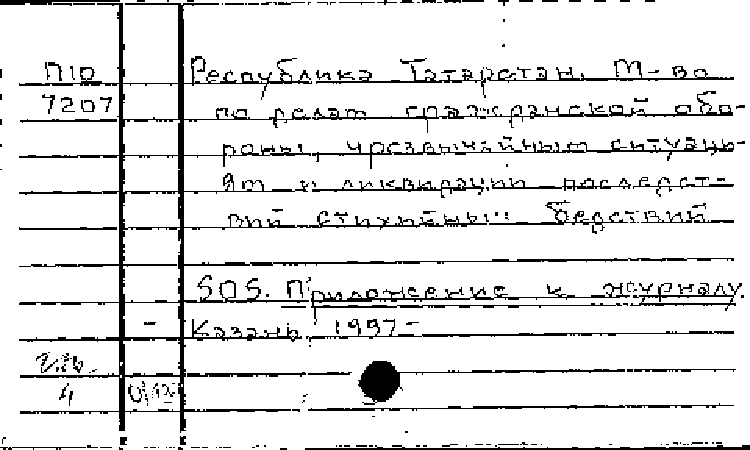 П10
7207
Республика Татарстан. М-во
по делам гражданской обо-
роны, чрезвычайным ситуаци-
ям и ликвидации последст-
вий стихийных бедствий
SOS. Приложение к журналу.
Казань, 1997-
4